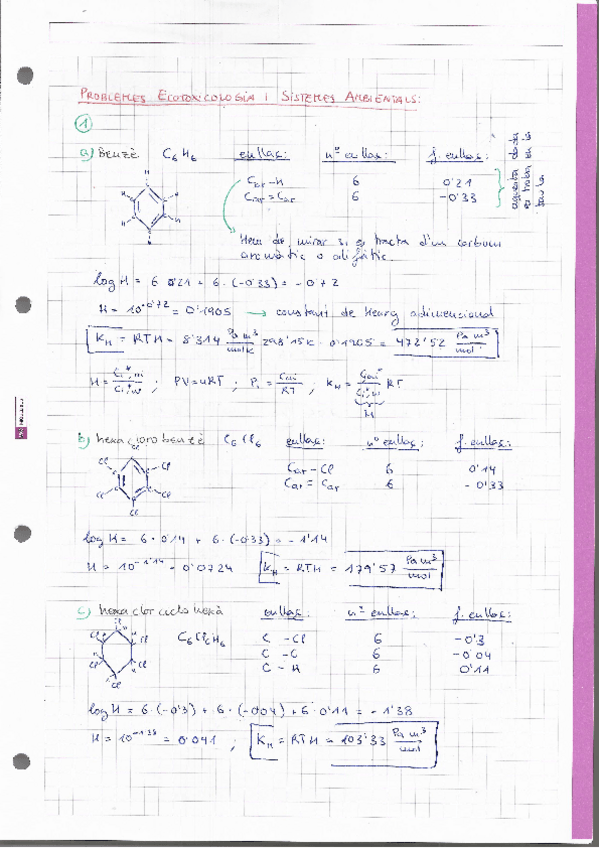 PROBLEMES ECOTOXICOLOGIA I SISTEMES AMBIENTALS:
1
a) Benzè C6H6 enllaç: nº enllaç: f. enllaç:
Car-H 6 0'21
Car=Car 6 -0'33
Hem de mirar si es tracta d'un carboni
aromàtic o alifàtic.
log H = 6·0'21 + 6·(-0'33) = -0'72
H = 10^-0'72 = 0'1905 → constant de Henry adimensional
KH = RTH = 8'314 Pa m³/mol K 298'15K · 0'1905 = 472'52 Pa m³/mol
PV = nRT ; KH = RT
H
b) hexaclorobenzè C6Cl6 enllaç: nº enllaç: f. enllaç:
Car-Cl 6 0'14
Car=Car 6 -0'33
log H = 6·0'14 + 6·(-0'33) = -1'14
H = 10^-1'14 = 0'0724 KH = RTH = 179'57 Pa m³/mol
c) hexaclorciclohexà enllaç: nº enllaç: f. enllaç:
C6Cl6H6 C-Cl 6 -0'3
C-C 6 -0'04
C-H 6 0'11
log H = 6·(-0'3) + 6·(-0'04) + 6·0'11 = -1'38
H = 10^-1'38 = 0'041 ; KH = RTH = 103'33 Pa m³/mol